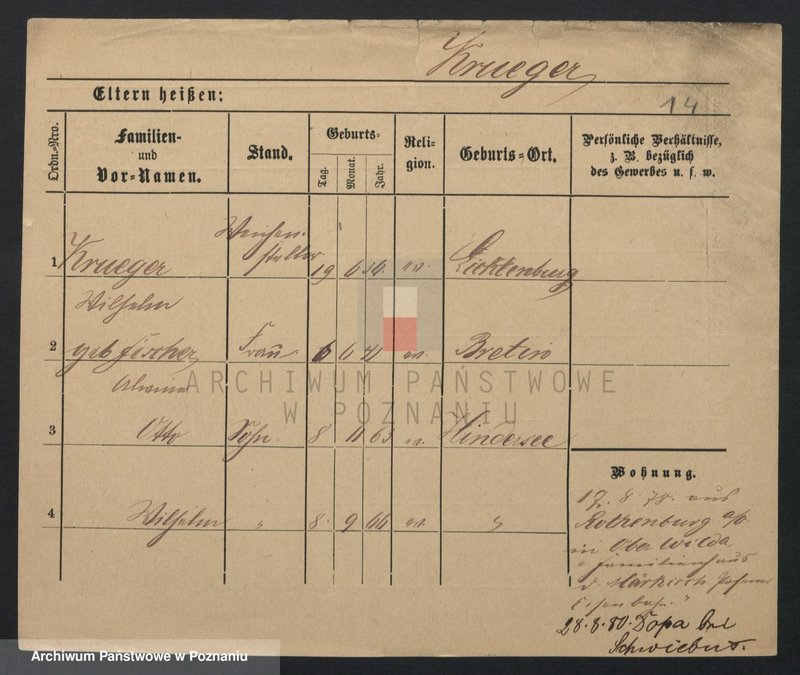 Krueger
14
Eltern heißen:
Ordn.-Nro.
Familien-
und
Vor-Namen.
Stand.
Geburts-
Tag.
Monat.
Jahr.
Reli-
gion.
Geburts-Ort.
Persönliche Verhältnisse,
z. B. bezüglich
des Gewerbes u. s. w.
Weichen-
steller
1 Krueger 19 6 ev. Lichtenburg
Wilhelm
2 geb Fischer Frau 6 6 41 ev.
3 Otto Sohn. 8 11 63 ev. Hindersee
4 Wilhelm " 8. 9 66 ev. "
Wohnung.
17. 8. 78. aus
Rothenburg a/o
in Ober Wilda
" Familienhaus
d. Märkisch Posener
Eisenbahn. "
28.8.80. Topa bei
Schwiebus.
ARCHIWUM PAŃSTWOWE
W POZNANIU
Archiwum Państwowe w Poznaniu